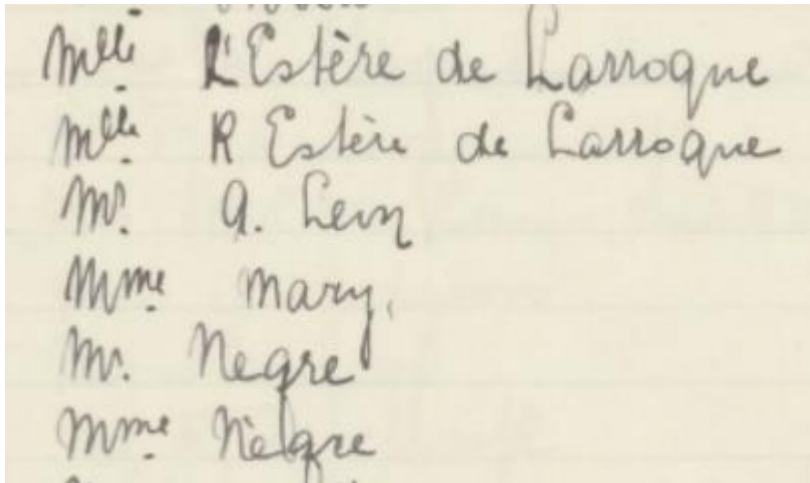 Mlle L'Estère de Larroque
Mlle R Estère de Larroque
Mr. A. Levy
Mme Mary,
Mr. Negre
Mme Nègre